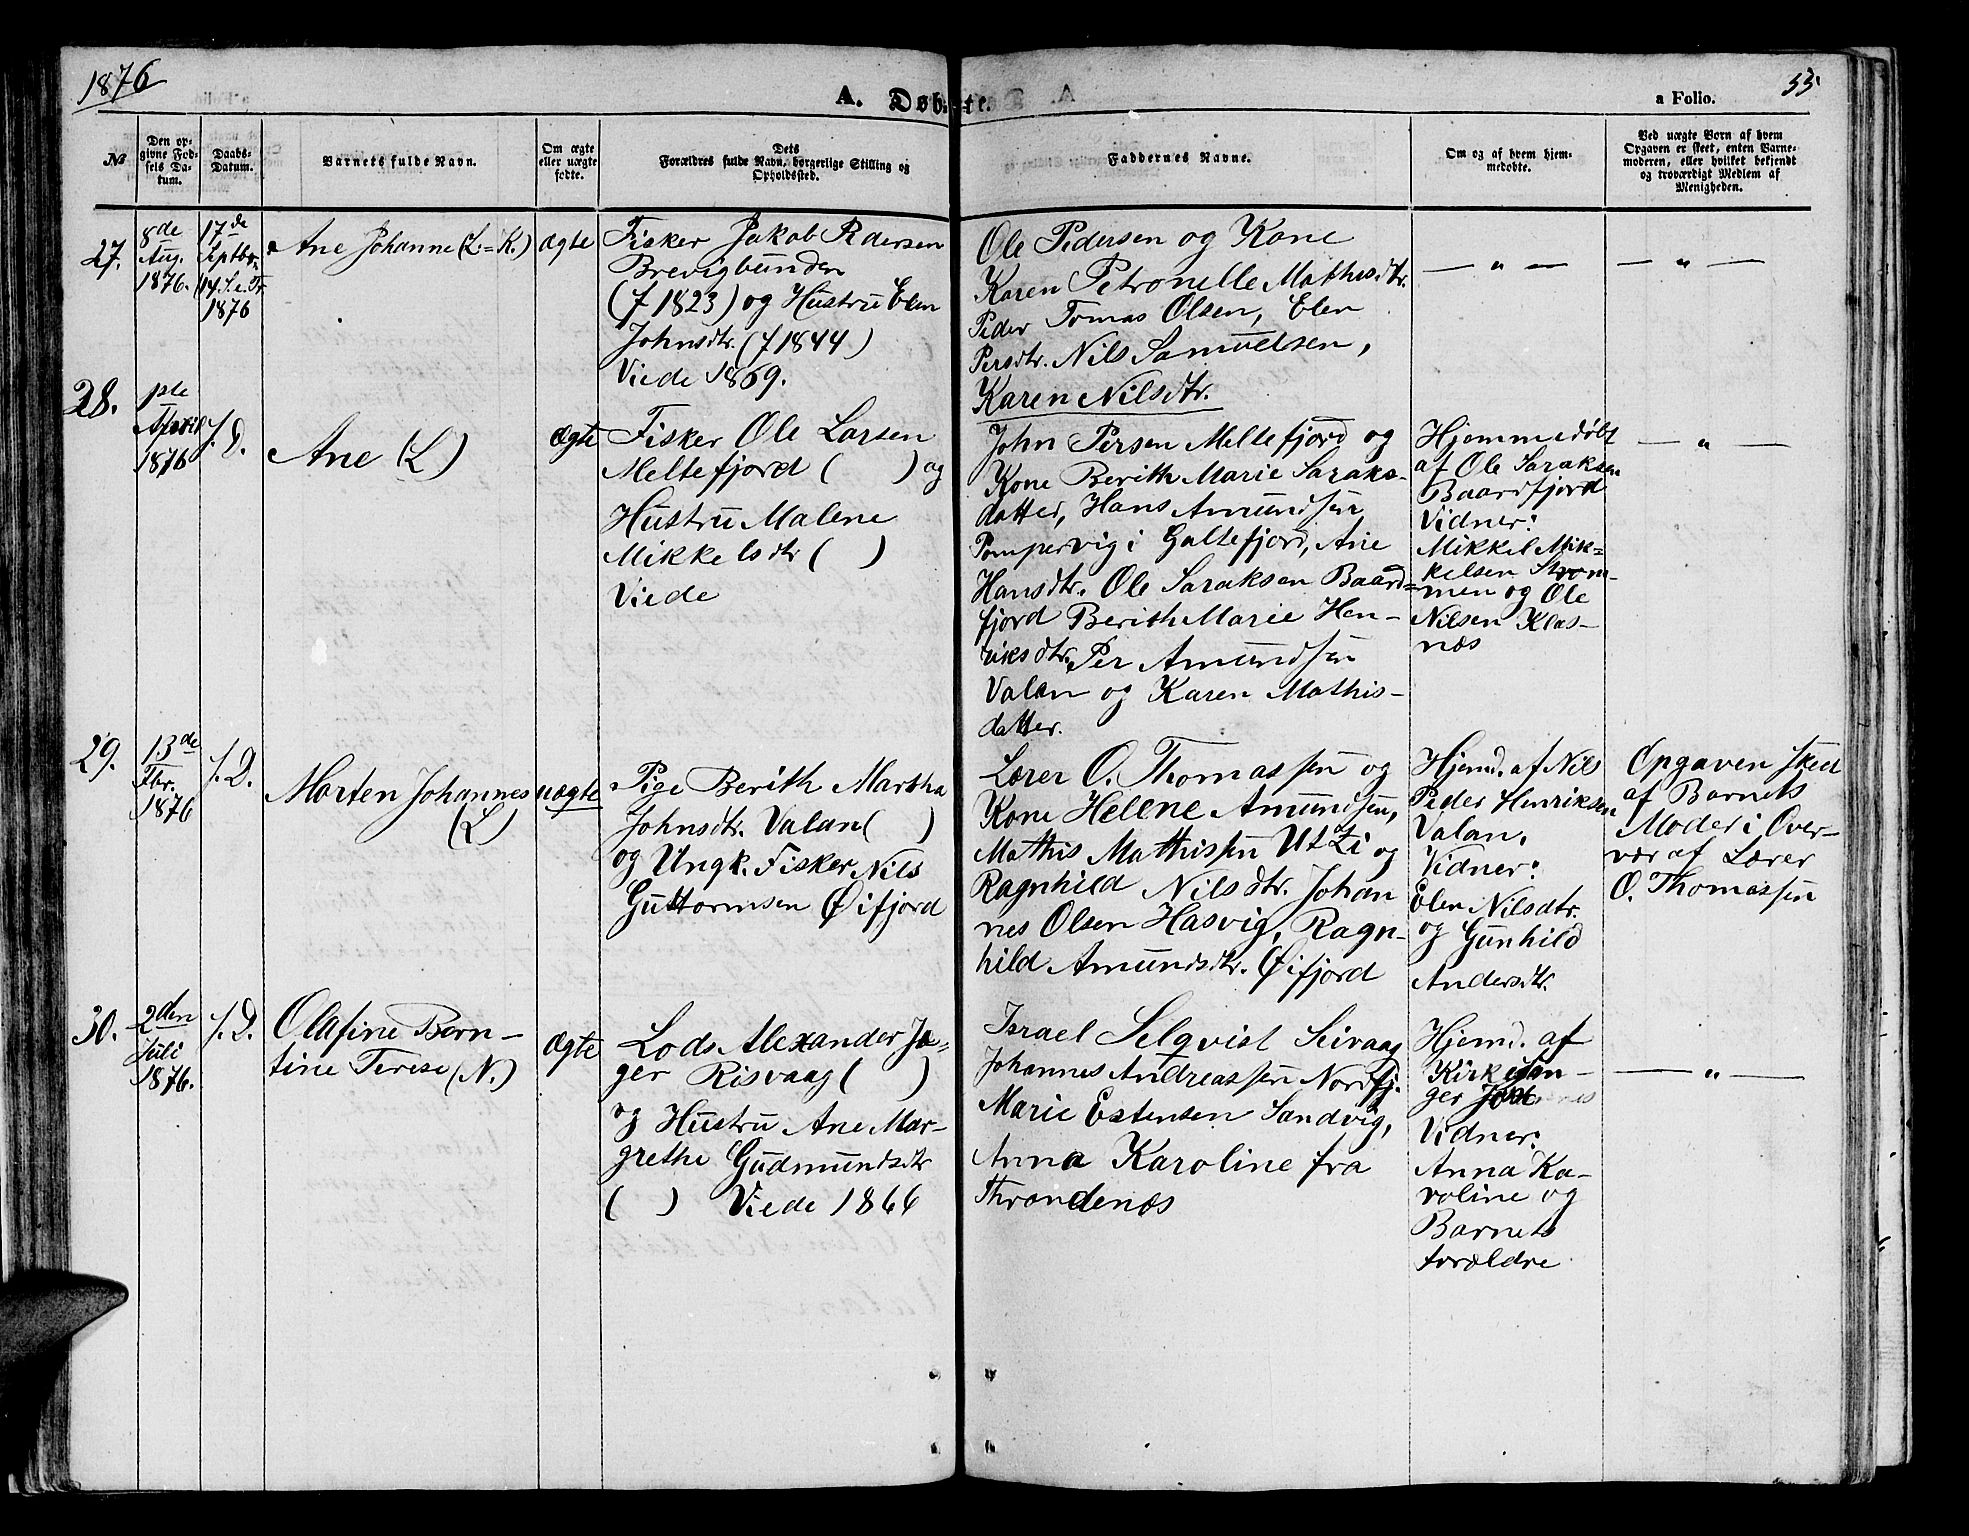 1876
A. Døbte.
55
a Folio.
№
Den op-
givne Fød-
sels Da-
tum.
Daabs-
Datum.
Barnets fulde Navn.
Om ægte
eller uægte
fødte.
Dets
Forældres fulde Navn, borgerlige Stilling og
Opholdssted.
Faddernes Navne.
Om og af hvem hjem-
medøbte.
Ved uægte Børn af hvem
Opgaven er skeet, enten Barne-
moderen, eller hvilket bekjendt
og troværdigt Medlem af
Menigheden.
27.
8de
Aug.
1876.
17de
Septbr.
14. S. e. Tr.
1876
Ane Johanne (L.=K.)
Ægte
Fisker Jakob Pedersen
Brevigbunden
(f 1823) og Hustru Elen
Johnsdtr. (f 1844)
Viede 1869.
Ole Pedersen og Kone
Karen Petronelle Mathisdtr.
Peder Tomas Olsen, Elen
Persdtr. Nils Samuelsen,
Karen Nilsdtr.
— " —
— " —
28.
1ste
April
1876
s. D.
Ane (L)
Ægte
Fisker Ole Larsen
Meltefjord ( ) og
Hustru Malene
Mikkelsdtr ( )
Viede
John Persen Meltefjord og
Kone Berith Marie Saraks-
datter, Hans Amundsen
Pompervig i Galtefjord, Ane
Hansdtr. Ole Saraksen Baard=
fjord Berith Marie Hen-
riksdtr. Per Amundsen
Valan og Karen Mathis-
datter.
Hjemmedøbt
af Ole Saraksen
Baardfjord
Vidner:
Mikkel Mik=
kelsen Strøm-
men og Ole
Nilsen Klas-
næs
— " —
29.
13de
Fbr.
1876
s. D.
Morten Johannes
(L)
uægte
Pige Berith Martha
Johnsdtr. Valan ( )
og Ungk. Fisker Nils
Guttormsen Øifjord
Lærer O. Thomassen og
Kone Helene Amundsen,
Mathis Mathissen Utzi og
Ragnhild Nilsdtr. Johan
nes Olsen Hasvig, Ragn-
hild Amundsdtr. Øifjord
Hjemd. af Nils
Peder Henriksen
Valan.
Vidner:
Elen Nilsdtr.
og Gunhild
Andersdtr.
Opgaven skeet
af Barnets
Moder i Over-
vær af Lærer
O. Thomassen
30.
2den
Juli
1876.
s. D.
Olafine Bern-
tine Terese (N.)
Ægte
Lods Alexander Jæ-
ger Risvaag ( )
og Hustru Ane Mar-
grethe Gudmundsdtr
( ) Viede 1866
Israel Selqvist Seivaag
Johannes Andreassen Nordfj.
Marie Estensen Sandvig,
Anna Karoline fra
Throndenæs
Hjemd. af
Kirkesan-
ger
Vidner:
Anna Ka-
roline og
Barnets
forældre
— " —